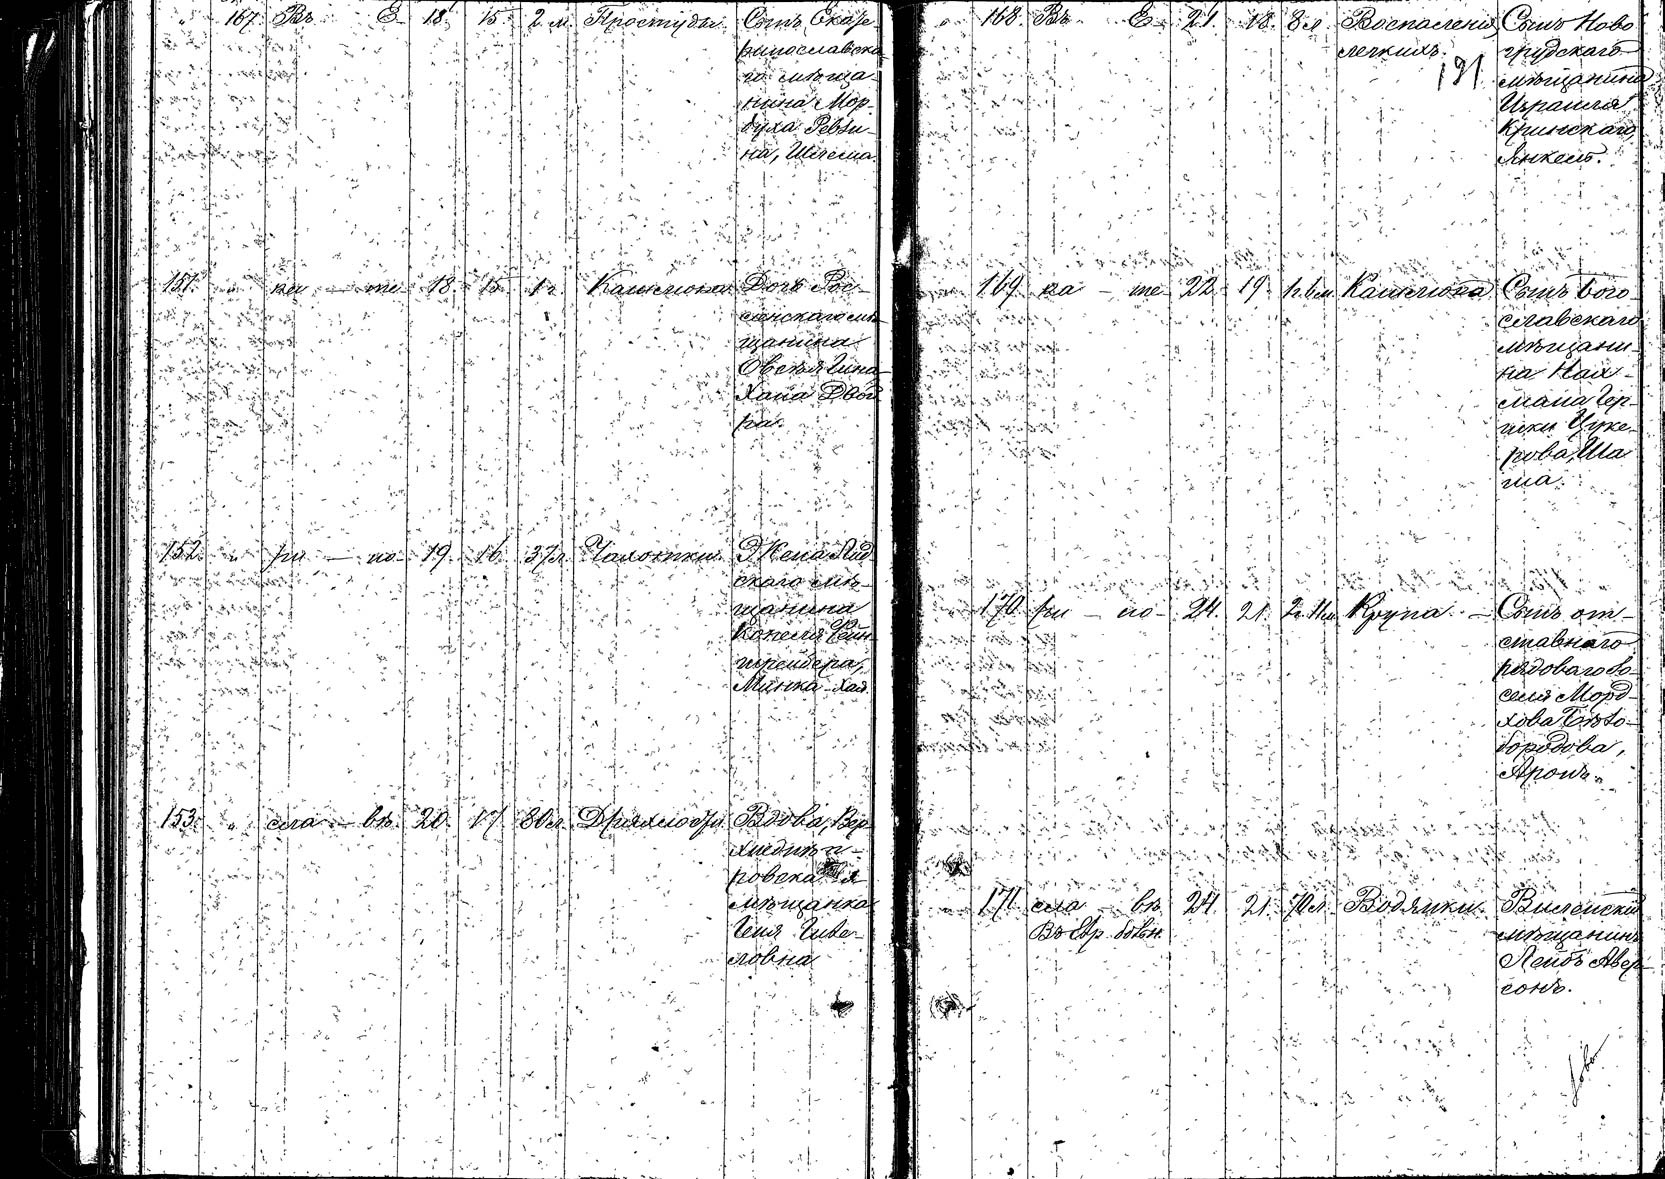 " 167 Въ Е 18 15 2 м Простуды Сынъ Екате
ринославска
го мѣща-
нина Мор-
духа Ревзи-
на, Шлема.
151. " ка — те 18. 15 1 г. Кашлюка Дочь Рос-
сіенскаго мѣ-
щанина
Овсея Гина
Хана Двей
ра.
152. " ри — но 19. 16 37 л. Чахотки Жена Лид
скаго мѣ-
щанина
Копеля
Минка-Хая.
153. " сла — въ. 20. 17 80 л. Дряхлости Вдова, Вер-
хнеднѣп-
ровская
мѣщанка
Геня Гиве-
ловна
" 168 Въ Е 21 18 8 л Воспаленія Сынъ Ново
легкихъ. грудскаго
191 мѣщанина
Израиля
Кринскаго,
Янкель.
" 169 ка — те 22 19 1 г. 6 м. Кашлюка Сынъ Бого-
славскаго
мѣщани-
на Нах-
мана Гер-
шки Цуке-
рова, Ша
ша.
170 ри — но 24 21. 2 г. 11 м. Крупа — Сынъ от-
ставнаго
рядоваго Іо-
селя Морд-
хова Бѣло-
бородова,
Аронъ.
171 сла — въ 24 21 70 л. Водянки Виленскій
Въ Евр. больн. мѣщанинъ
Лейбъ Авер-
сонъ.